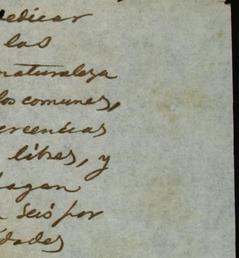 dedicar
las
naturaleza
los comunes,
creencias
libres, y
hagan
seis por